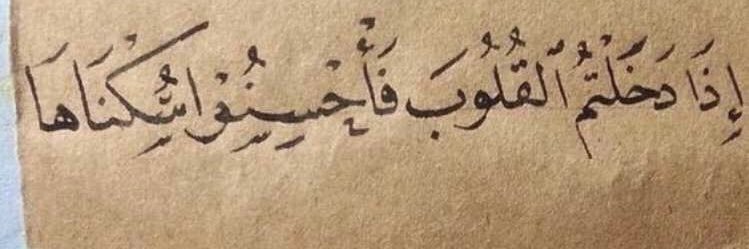 إِذَا دَخَلْتُمُ ٱلْقُلُوبَ فَأَحْسِنُوْا سُكْنَاهَا